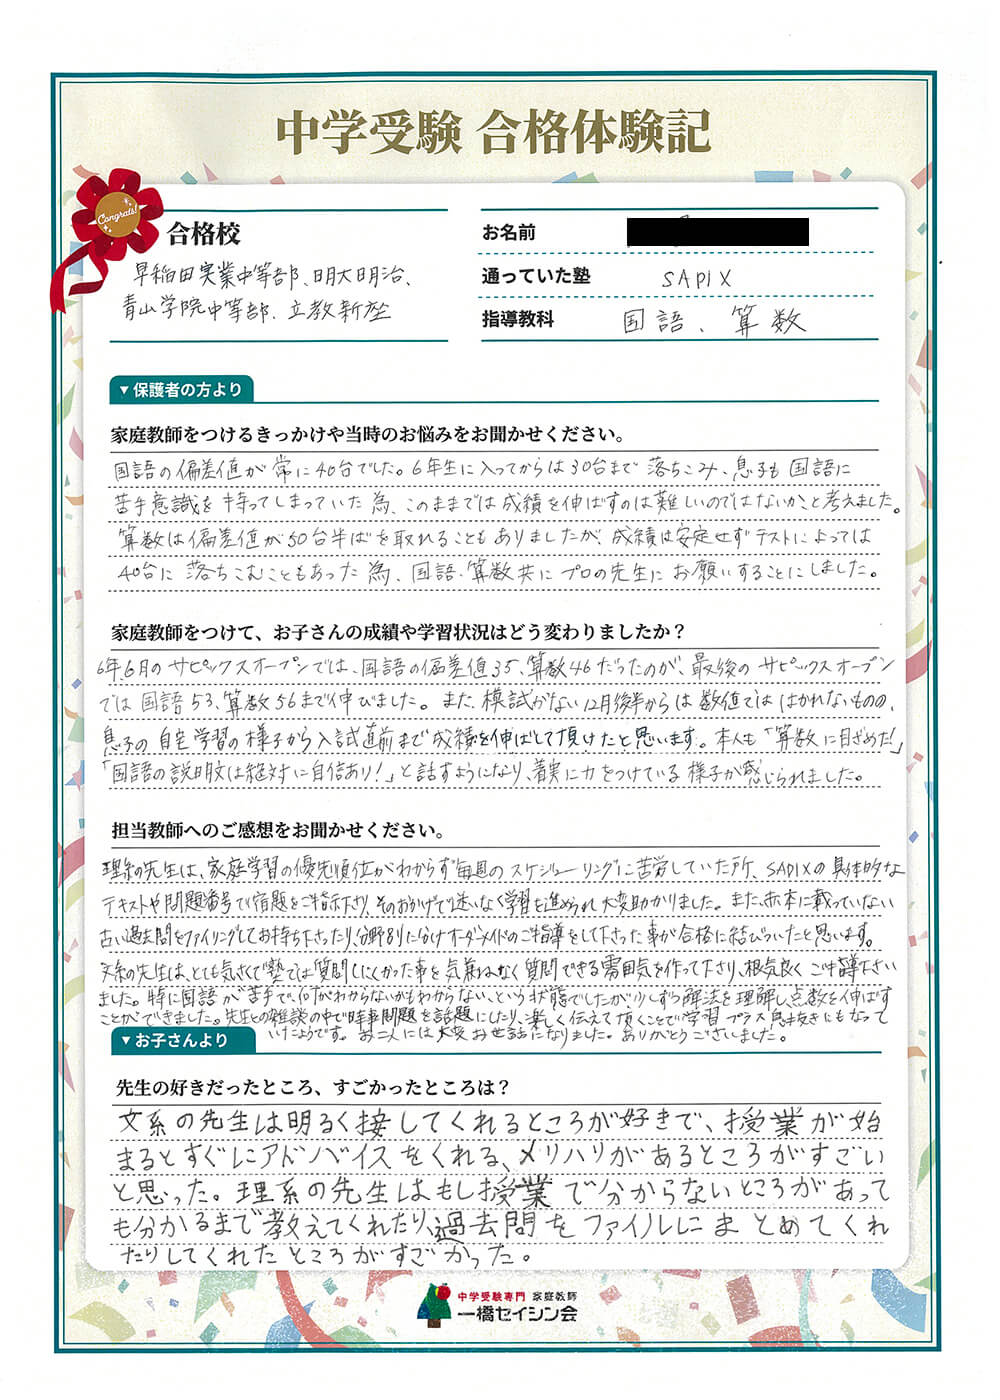 中学受験 合格体験記
Congrats!
合格校
早稲田実業中等部、明大明治、
青山学院中等部、立教新座
お名前
通っていた塾 SAPIX
指導教科 国語、算数
▼保護者の方より
家庭教師をつけるきっかけや当時のお悩みをお聞かせください。
国語の偏差値が常に40台でした。6年生に入ってからは30台まで落ちこみ、息子も国語に
苦手意識を持ってしまっていた為、このままでは成績を伸ばすのは難しいのではないか、と考えました。
算数は偏差値が50台半ばを取れることもありましたが、成績は安定せずテストによっては
40台に落ちこむこともあった為、国語・算数共にプロの先生にお願いすることにしました。
家庭教師をつけて、お子さんの成績や学習状況はどう変わりましたか？
6年6月のサピックスオープンでは、国語の偏差値35、算数46だったのが、最後のサピックスオープン
では国語53、算数56まで伸びました。また、模試がない12月後半からは数値でははかれないものの、
息子の自宅学習の様子から入試直前まで成績を伸ばして頂けたと思います。本人も「算数に目ざめた！」
「国語の説明文は絶対に自信あり！」と話すようになり、着実に力をつけている様子が感じられました。
担当教師へのご感想をお聞かせください。
理系の先生は、家庭学習の優先順位がわからず毎週のスケジューリングに苦労していた所、SAPIXの具体的な
テキストや問題番号で宿題をご指示下さり、そのおかげで迷いなく学習を進められ大変助かりました。また、赤本に載っていない
古い過去問をファイリングしてお持ち下さったり、分野別に分けオーダーメイドのご指導をして下さった事が合格に結びついたと思います。
文系の先生は、とても気さくで塾では質問しにくかった事を気兼ねなく質問できる雰囲気を作って下さり、根気良くご指導下さい
ました。特に国語が苦手で、何がわからないかもわからない、という状態でしたが少しずつ解法を理解し、点数を伸ばす
ことができました。先生との雑談の中で時事問題を話題にしたり、楽しく伝えて頂くことで学習プラス息抜きにもなって
いたようです。お二人には大変お世話になりました。ありがとうございました。
▼お子さんより
先生の好きだったところ、すごかったところは？
文系の先生は明るく接してくれるところが好きで、授業が始
まるとすぐにアドバイスをくれる、メリハリがあるところがすごい
と思った。理系の先生はもし授業で分からないところがあって
も分かるまで教えてくれたり、過去問をファイルにまとめてくれ
たりしてくれたところがすごかった。
中学受験専門 家庭教師
一橋セイシン会